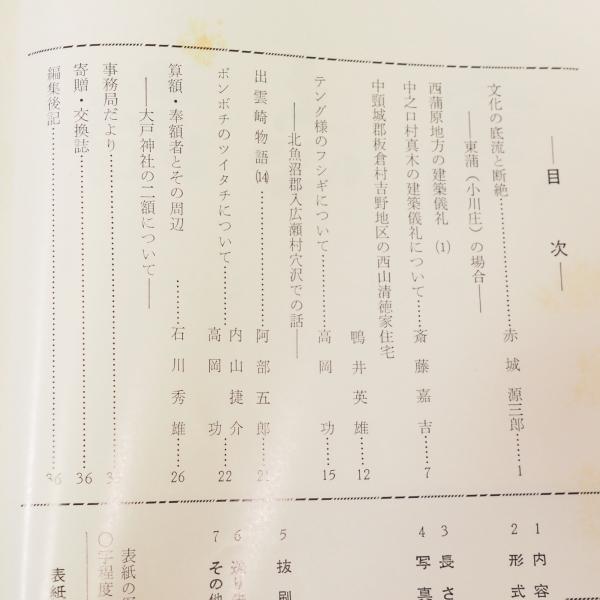 ―目次―
文化の底流と断絶……………赤城源三郎……1
――東蒲（小川庄）の場合――
西蒲原地方の建築儀礼 (1)
中之口村真木の建築儀礼について……斎藤嘉吉……7
中頸城郡板倉村吉野地区の西山清徳家住宅
鴨井英雄……12
テング様のフシギについて……………高岡功……15
――北魚沼郡入広瀬村穴沢での話――
出雲崎物語 (14)……………阿部五郎……21
ボンボチのツイタチについて……………内山捷介
高岡功……22
算額・奉額者とその周辺……石川秀雄……26
――大戸神社の二額について――
事務局だより……………3
寄贈・交換誌……………36
編集後記……………36
1 内容
2 形式
3 長さ
4 写真
5 抜刷
6
7 その他
表紙の
〇字程度
表紙